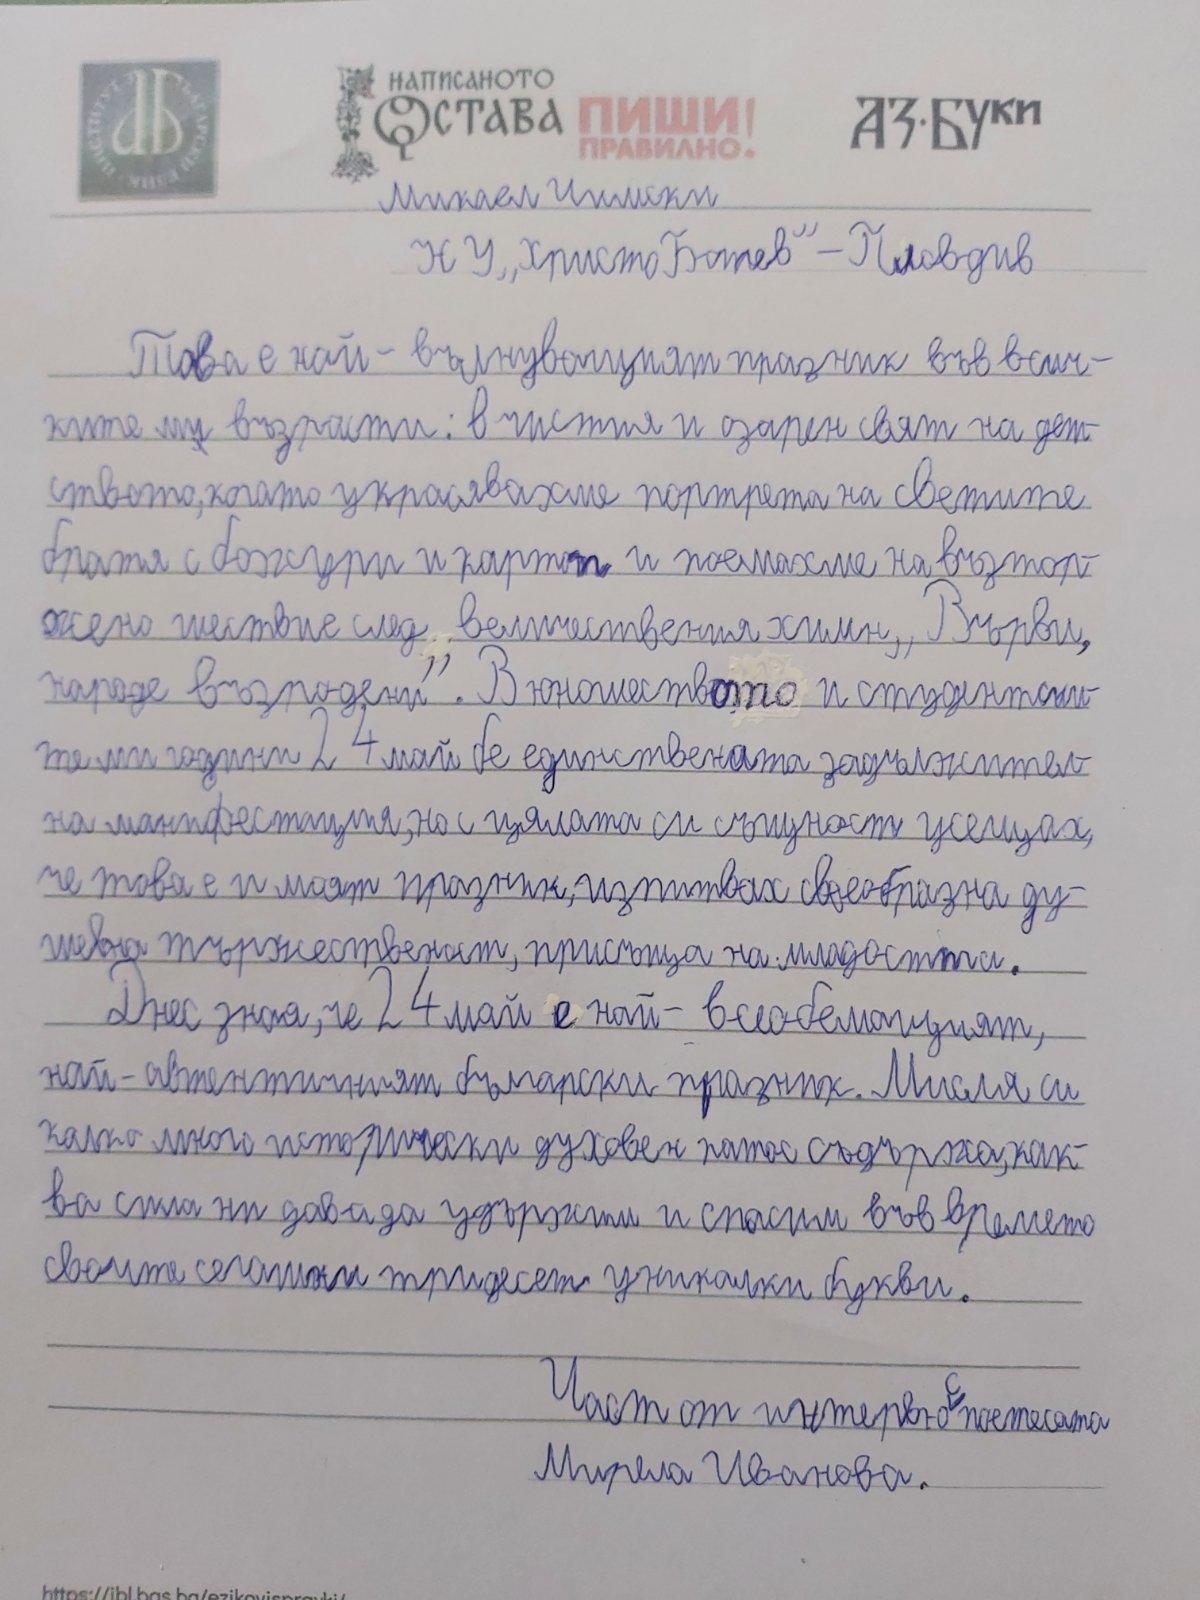 ИНСТИТУТ ЗА БЪЛГАРСКИ ЕЗИК
НАПИСАНОТО
ОСТАВА
ПИШИ
ПРАВИЛНО!
АЗ·БУКИ
Микаел
НУ „Христо Ботев" – Пловдив
Това е най-вълнуващият празник във всич-
ките му възрасти: в чистия и озарен свят на дет-
ството, когато украсявахме портрета на светите
братя с божури и картон и поемахме на възтор-
жено шествие след величествения химн „Върви,
народе възродени". В юношеството и студентски-
те ми години 24 май бе единствената задължител-
на манифестация, но с цялата си същност усещах,
че това е и моят празник, изпитвах своеобразна ду-
шевна тържественост, присъща на младостта.
Днес зная, че 24 май е най-всеобемащият,
най-автентичният български празник. Мисля си
колко много исторически духовен патос съдържа, как-
ва сила ни дава да удържим и спасим във времето
своите сегашни тридесет уникални букви.
Част от интервю с поетесата
Мирела Иванова.
https://ibl.bas.bg/ezikovispravki/